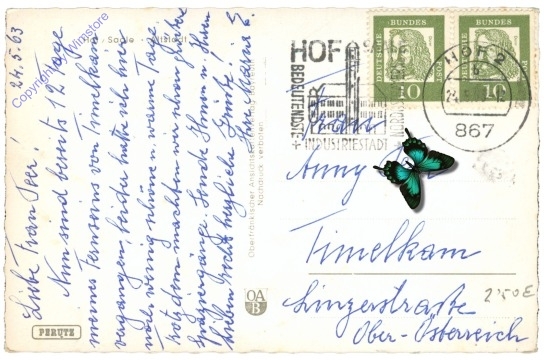 24.5.63
Liebe Frau Peer!
Nun sind bereits 12 Tage
meines Fernseins von Timelkam
vergangen, leider hatte ich hier
noch wenig schöne u. warme Tage
trotzdem machten wir schon
Spaziergänge. Sende Ihnen u. Ihren
Lieben recht herzliche Grüße!
Saale
Copyright by Wimstore
Oberfränkischer Ansichtskarten
Nachdruck verboten
OA
B
PERUTZ
HOF
SAALE
BEDEUTENDSTE
INDUSTRIESTADT
DEUTSCHE BUNDES POST
10
DEUTSCHE BUNDES POST
10
HOF 2
867
Frau
Anny
Timelkam
Linzerstraße
Ober-Österreich
2'50E